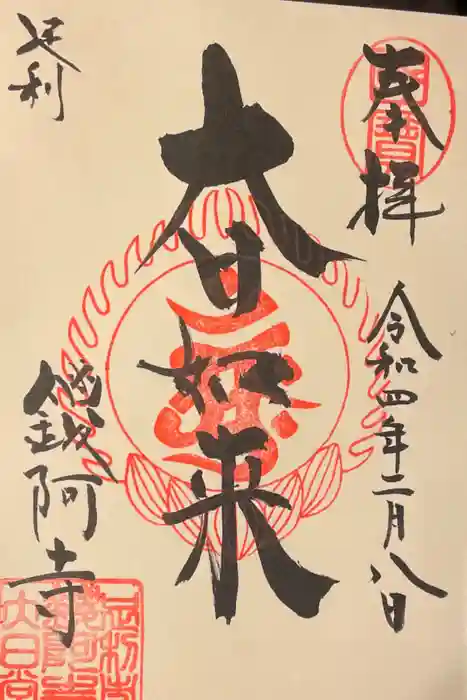 奉拝
令和四年二月八日
大日如来
足利
鑁阿寺